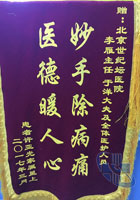 赠：北京世纪坛医院
李雁主任 于洋大夫及全体医护人员
妙手除病痛
医德暖人心
二〇一七年三月